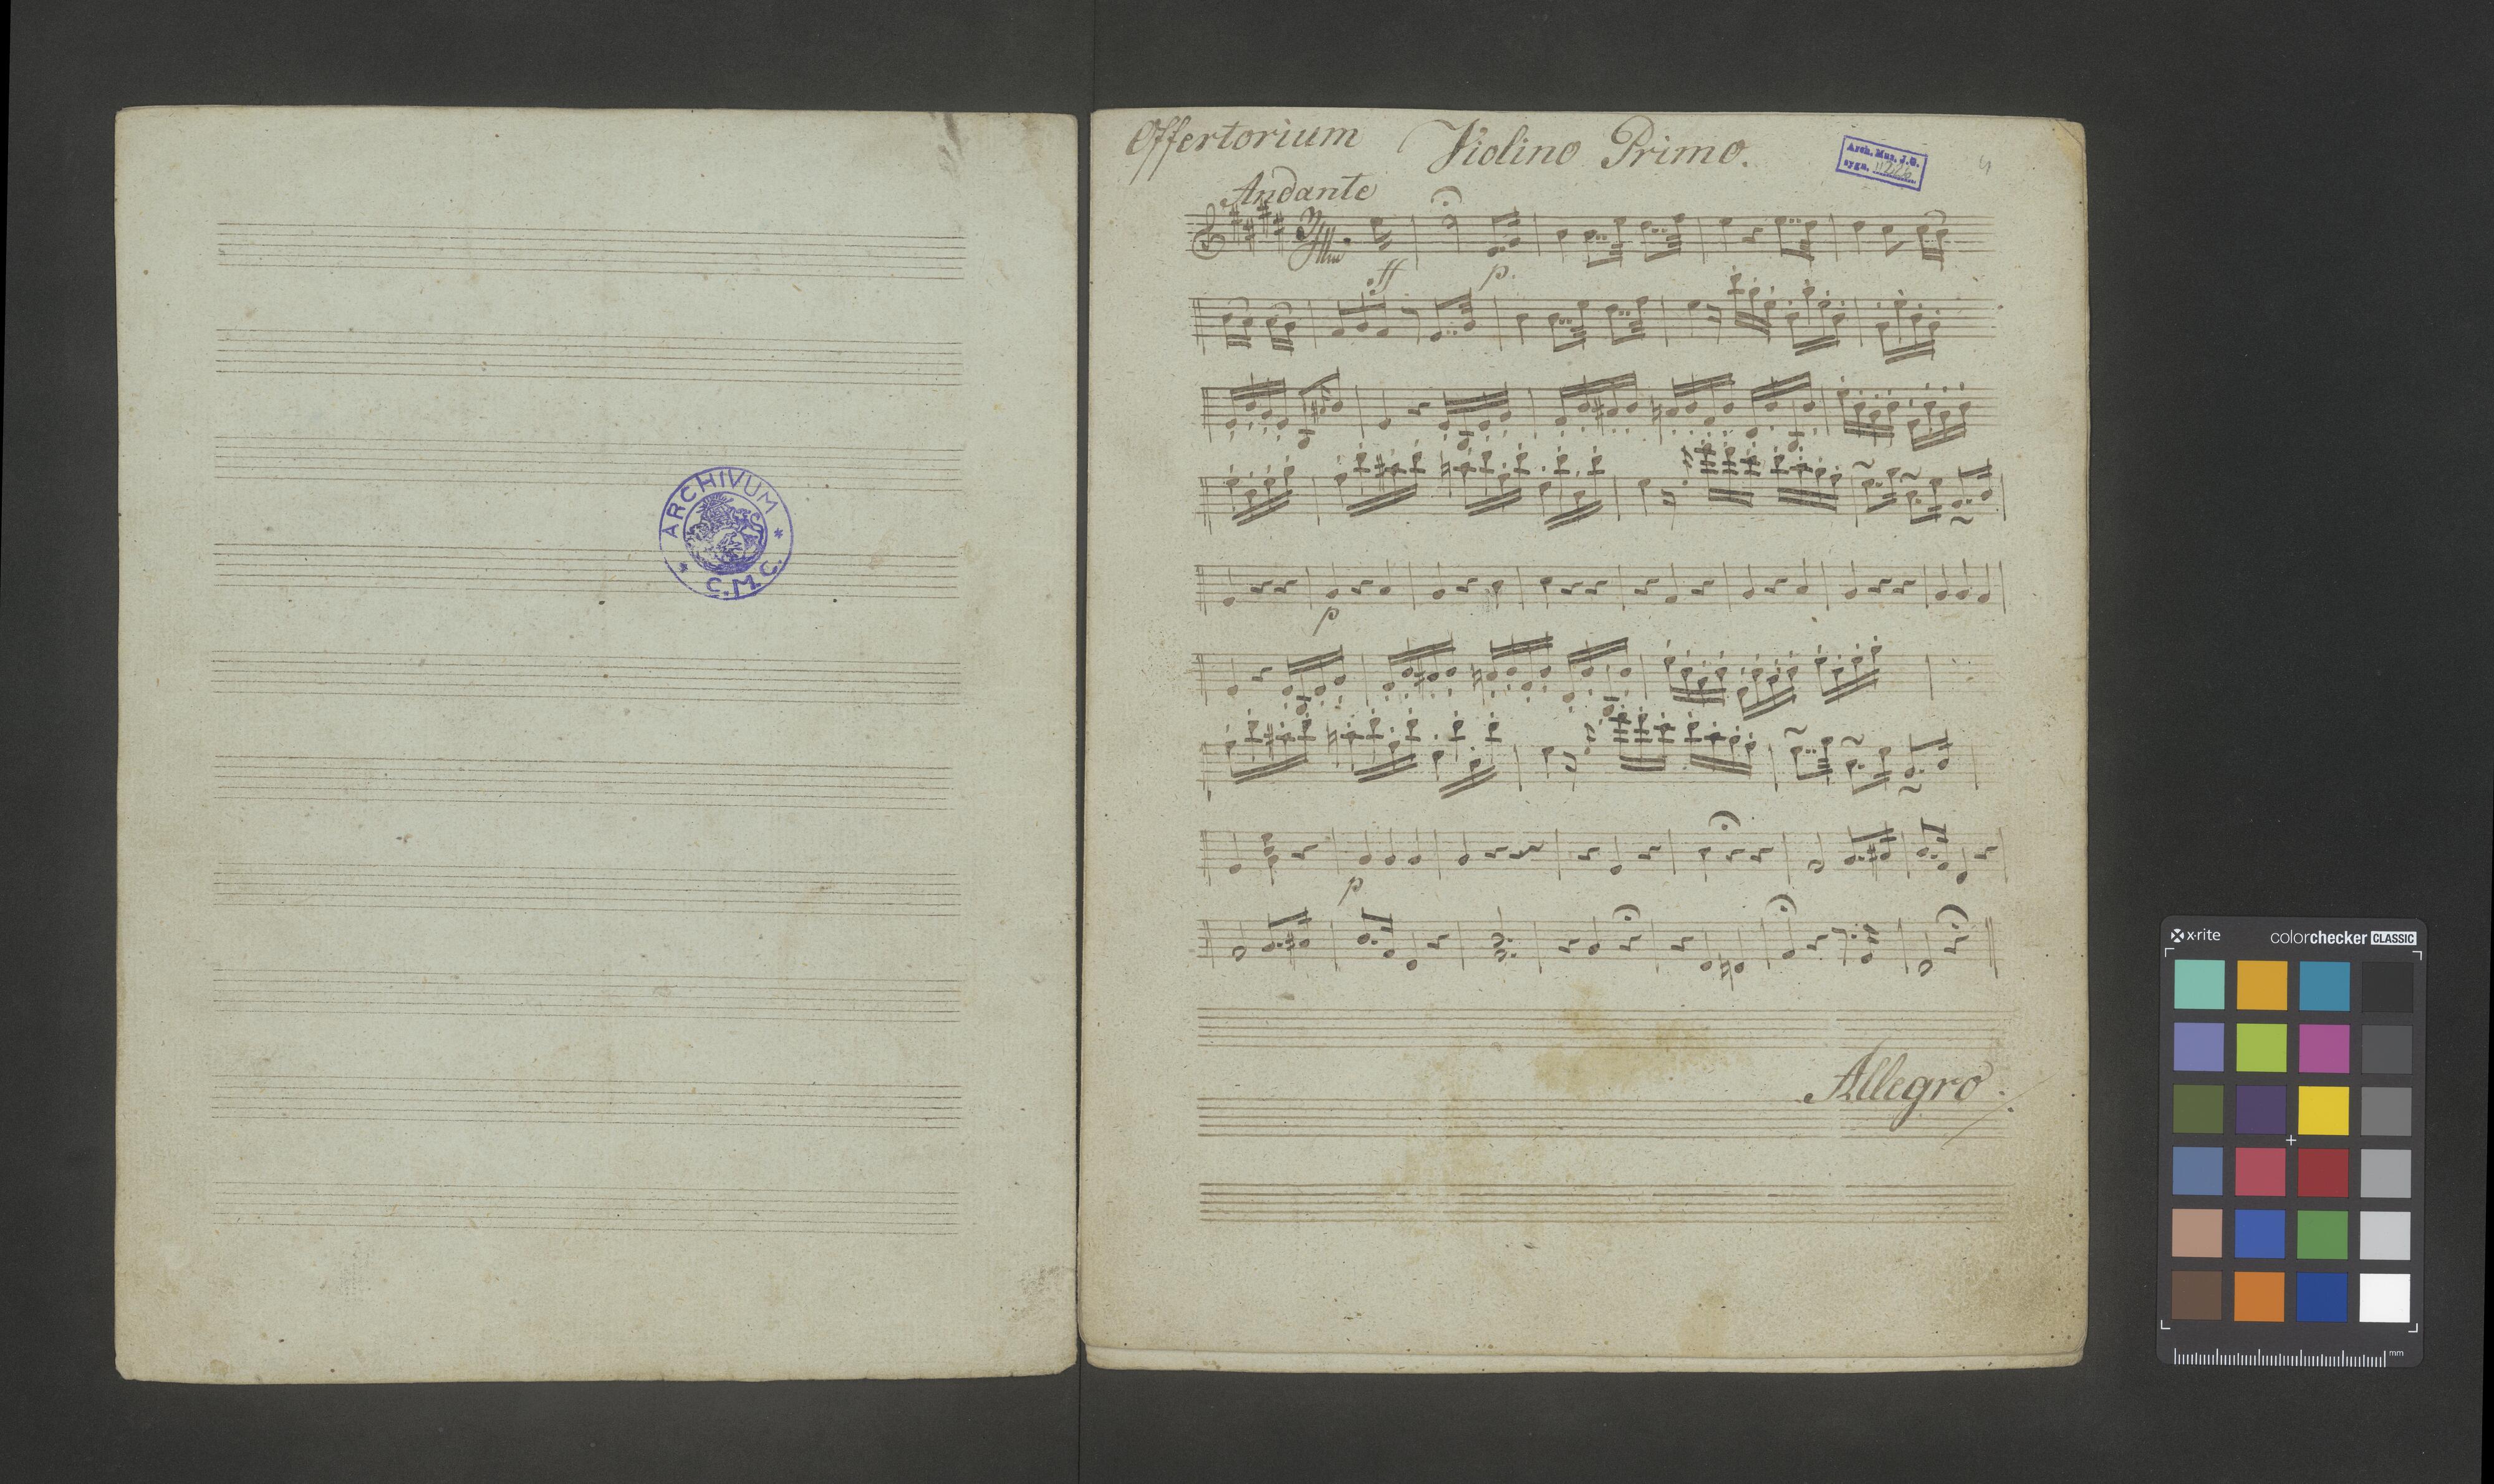 ARCHIVUM
* C.M.C. *
Offertorium Violino Primo.
Arch. Mus. J.G.
sygn.
Andante
ff p.
p
p
Allegro
x·rite colorchecker CLASSIC
mm